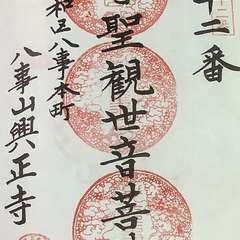 十二番
聖観世音菩
和区八事本町
八事山興正寺